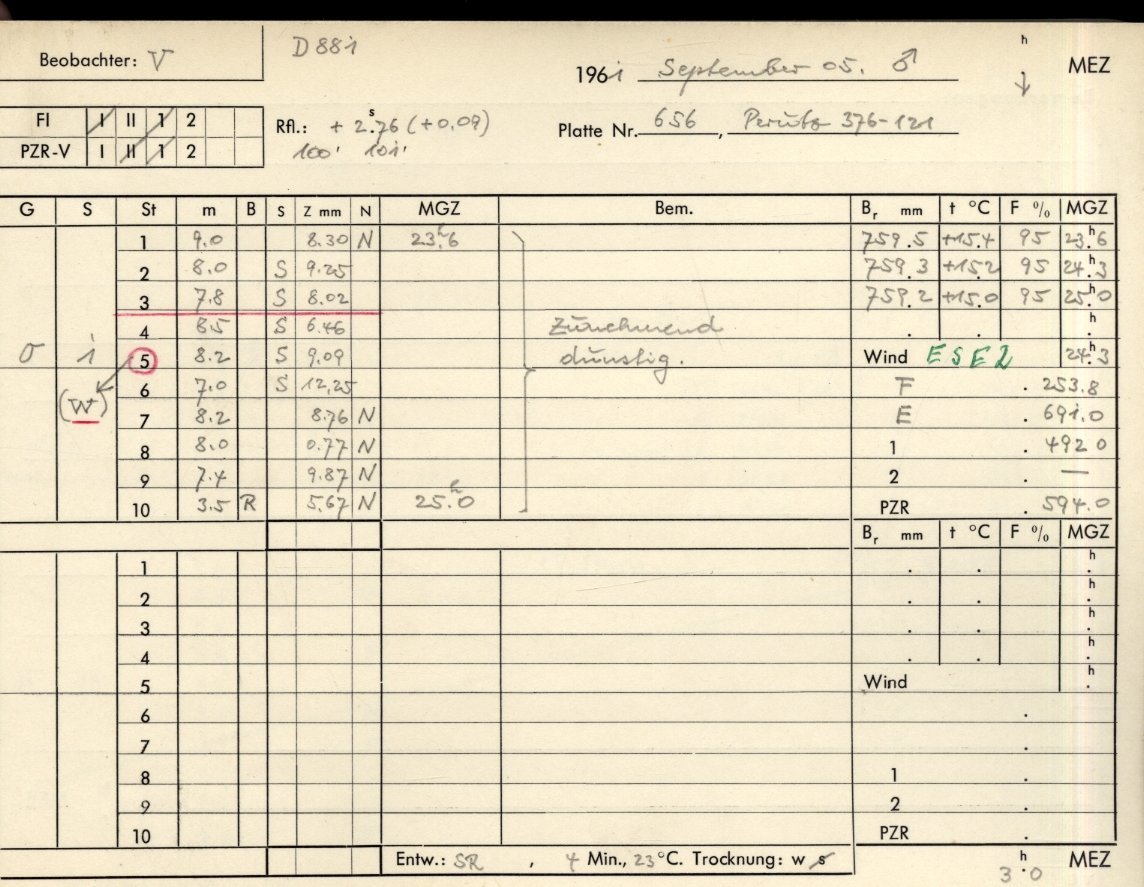 Beobachter: V
D 881
1961 September 05. ♂
h
MEZ
FI I II 1 2
PZR-V I II 1 2
Rfl.: + 2.ˢ76 (+0,09)
100' 101'
Platte Nr. 656, Perutz 376-121
G S St m B S Z mm N MGZ Bem. Br mm t °C F % MGZ
1 9.0 8.30 N 23.ʰ6 759.5 +15.4 95 23.ʰ6
2 8.0 S 9.25 759.3 +15.2 95 24.ʰ3
3 7.8 S 8.02 759.2 +15.0 95 25.ʰ0
4 8.5 S 6.46 Zunehmend . . h.
σ i 5 8.2 S 9.09 dunstig. Wind ESE2 24.ʰ3
(W) 6 7.0 S 12,25 F . 253.8
7 8.2 8.76 N E . 691.0
8 8.0 0.77 N 1 . 492 0
9 7.4 9.87 N 2 . —
10 3.5 R 5.67 N 25.ʰ0 PZR . 594.0
Br mm t °C F % MGZ
1 . . h.
2 . . h.
3 . . h.
4 . . h.
5 Wind h.
6 .
7 .
8 1 .
9 2 .
10 PZR .
Entw.: SR , 4 Min., 23 °C. Trocknung: w s
3.ʰ0 MEZ